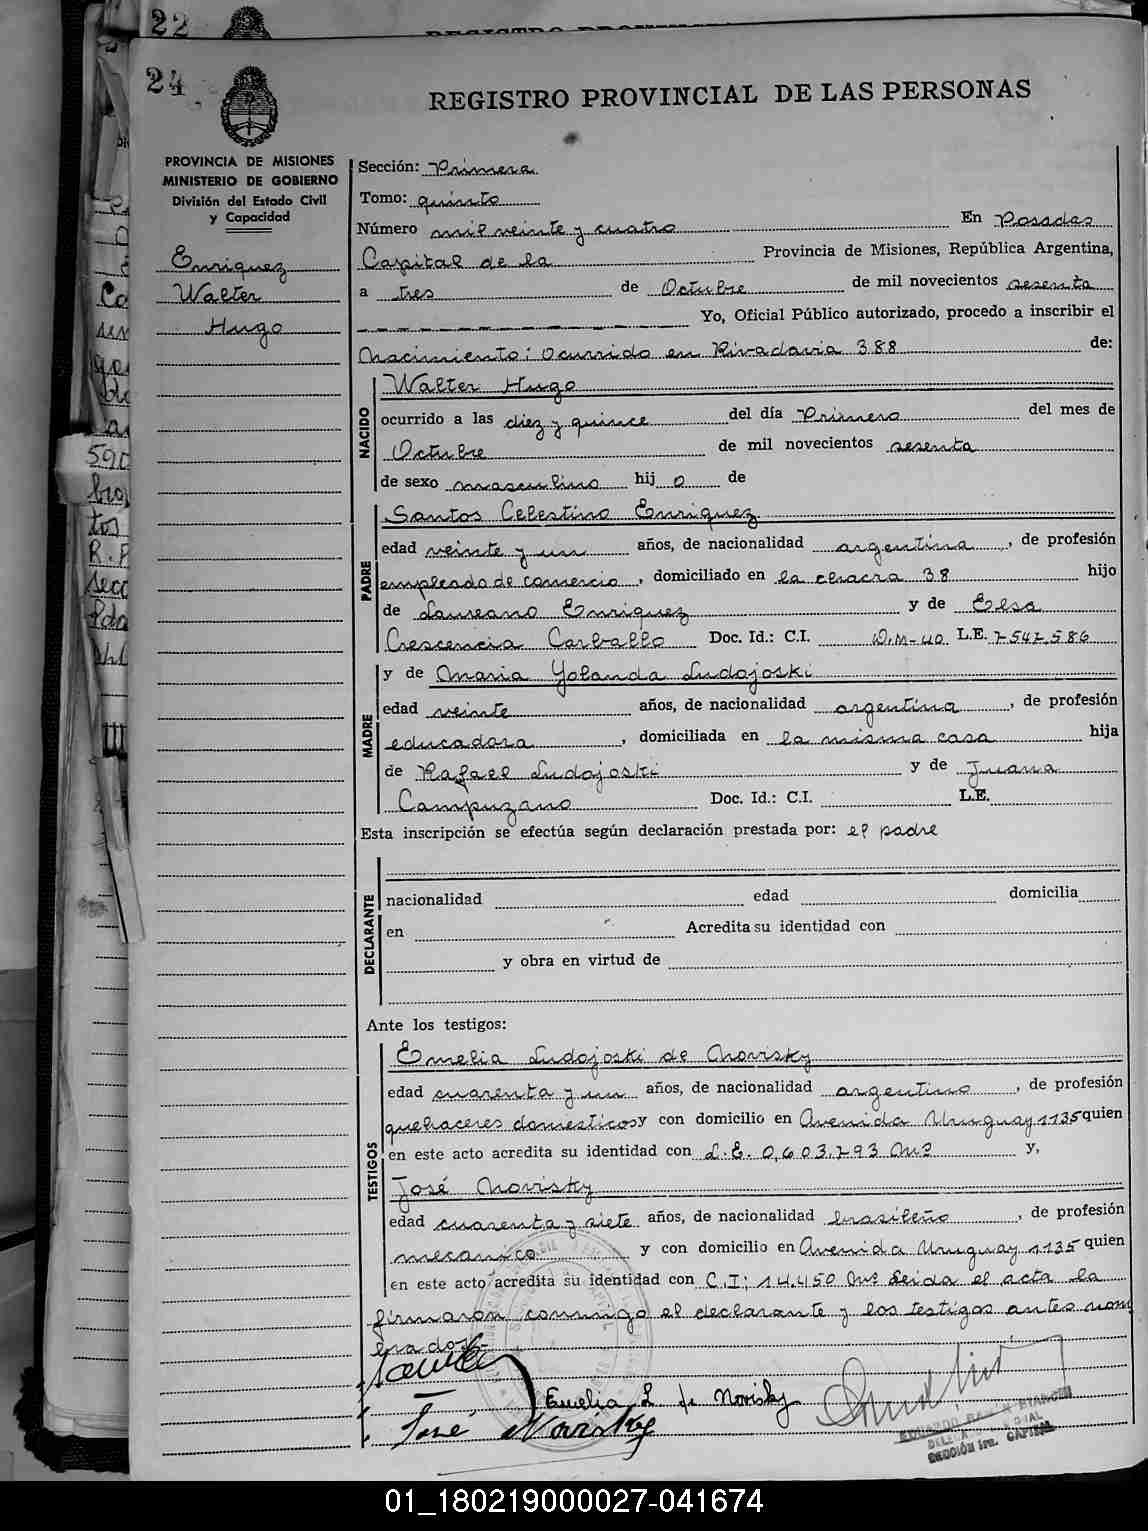 22
REGISTRO PROVINCIAL
24
REGISTRO PROVINCIAL DE LAS PERSONAS
PROVINCIA DE MISIONES
MINISTERIO DE GOBIERNO
División del Estado Civil
y Capacidad
Enriquez
Walter
Hugo
Sección: Primera
Tomo: quinto
Número mil veinte y cuatro En Posadas
Capital de la Provincia de Misiones, República Argentina,
a tres de Octubre de mil novecientos sesenta
Yo, Oficial Público autorizado, procedo a inscribir el
Nacimiento: Ocurrido en Rivadavia 388 de:
NACIDO
Walter Hugo
ocurrido a las diez y quince del día Primero del mes de
Octubre de mil novecientos sesenta
de sexo masculino hij o de
PADRE
Santos Celestino Enriquez
edad veinte y un años, de nacionalidad argentina, de profesión
empleado de comercio, domiciliado en la chacra 38 hijo
de Laureano Enriquez y de Elsa
Crescencia Carballo Doc. Id.: C.I. D.M-40 L.E. 7.547.586
MADRE
y de Maria Yolanda Ludojoski
edad veinte años, de nacionalidad argentina, de profesión
educadora, domiciliada en la misma casa hija
de Rafael Ludojoski y de Juana
Campuzano Doc. Id.: C.I. L.E.
Esta inscripción se efectúa según declaración prestada por: el padre
DECLARANTE
nacionalidad edad domicilia
en Acredita su identidad con
y obra en virtud de
Ante los testigos:
TESTIGOS
Emelia Ludojoski de Novisky
edad cuarenta y un años, de nacionalidad argentino, de profesión
quehaceres domesticos y con domicilio en Avenida Uruguay 1135 quien
en este acto acredita su identidad con L.E. 0,603.793 y,
José Novisky
edad cuarenta y siete años, de nacionalidad brasileño, de profesión
mecanico y con domicilio en Avenida Uruguay 1135 quien
en este acto acredita su identidad con C.I; 14.450 Leida el acta la
firmaron conmigo el declarante y los testigos antes nom
brados
Emelia L de Novisky
José Novisky
SECCIÓN 1ra. CAPITAL
01_180219000027-041674